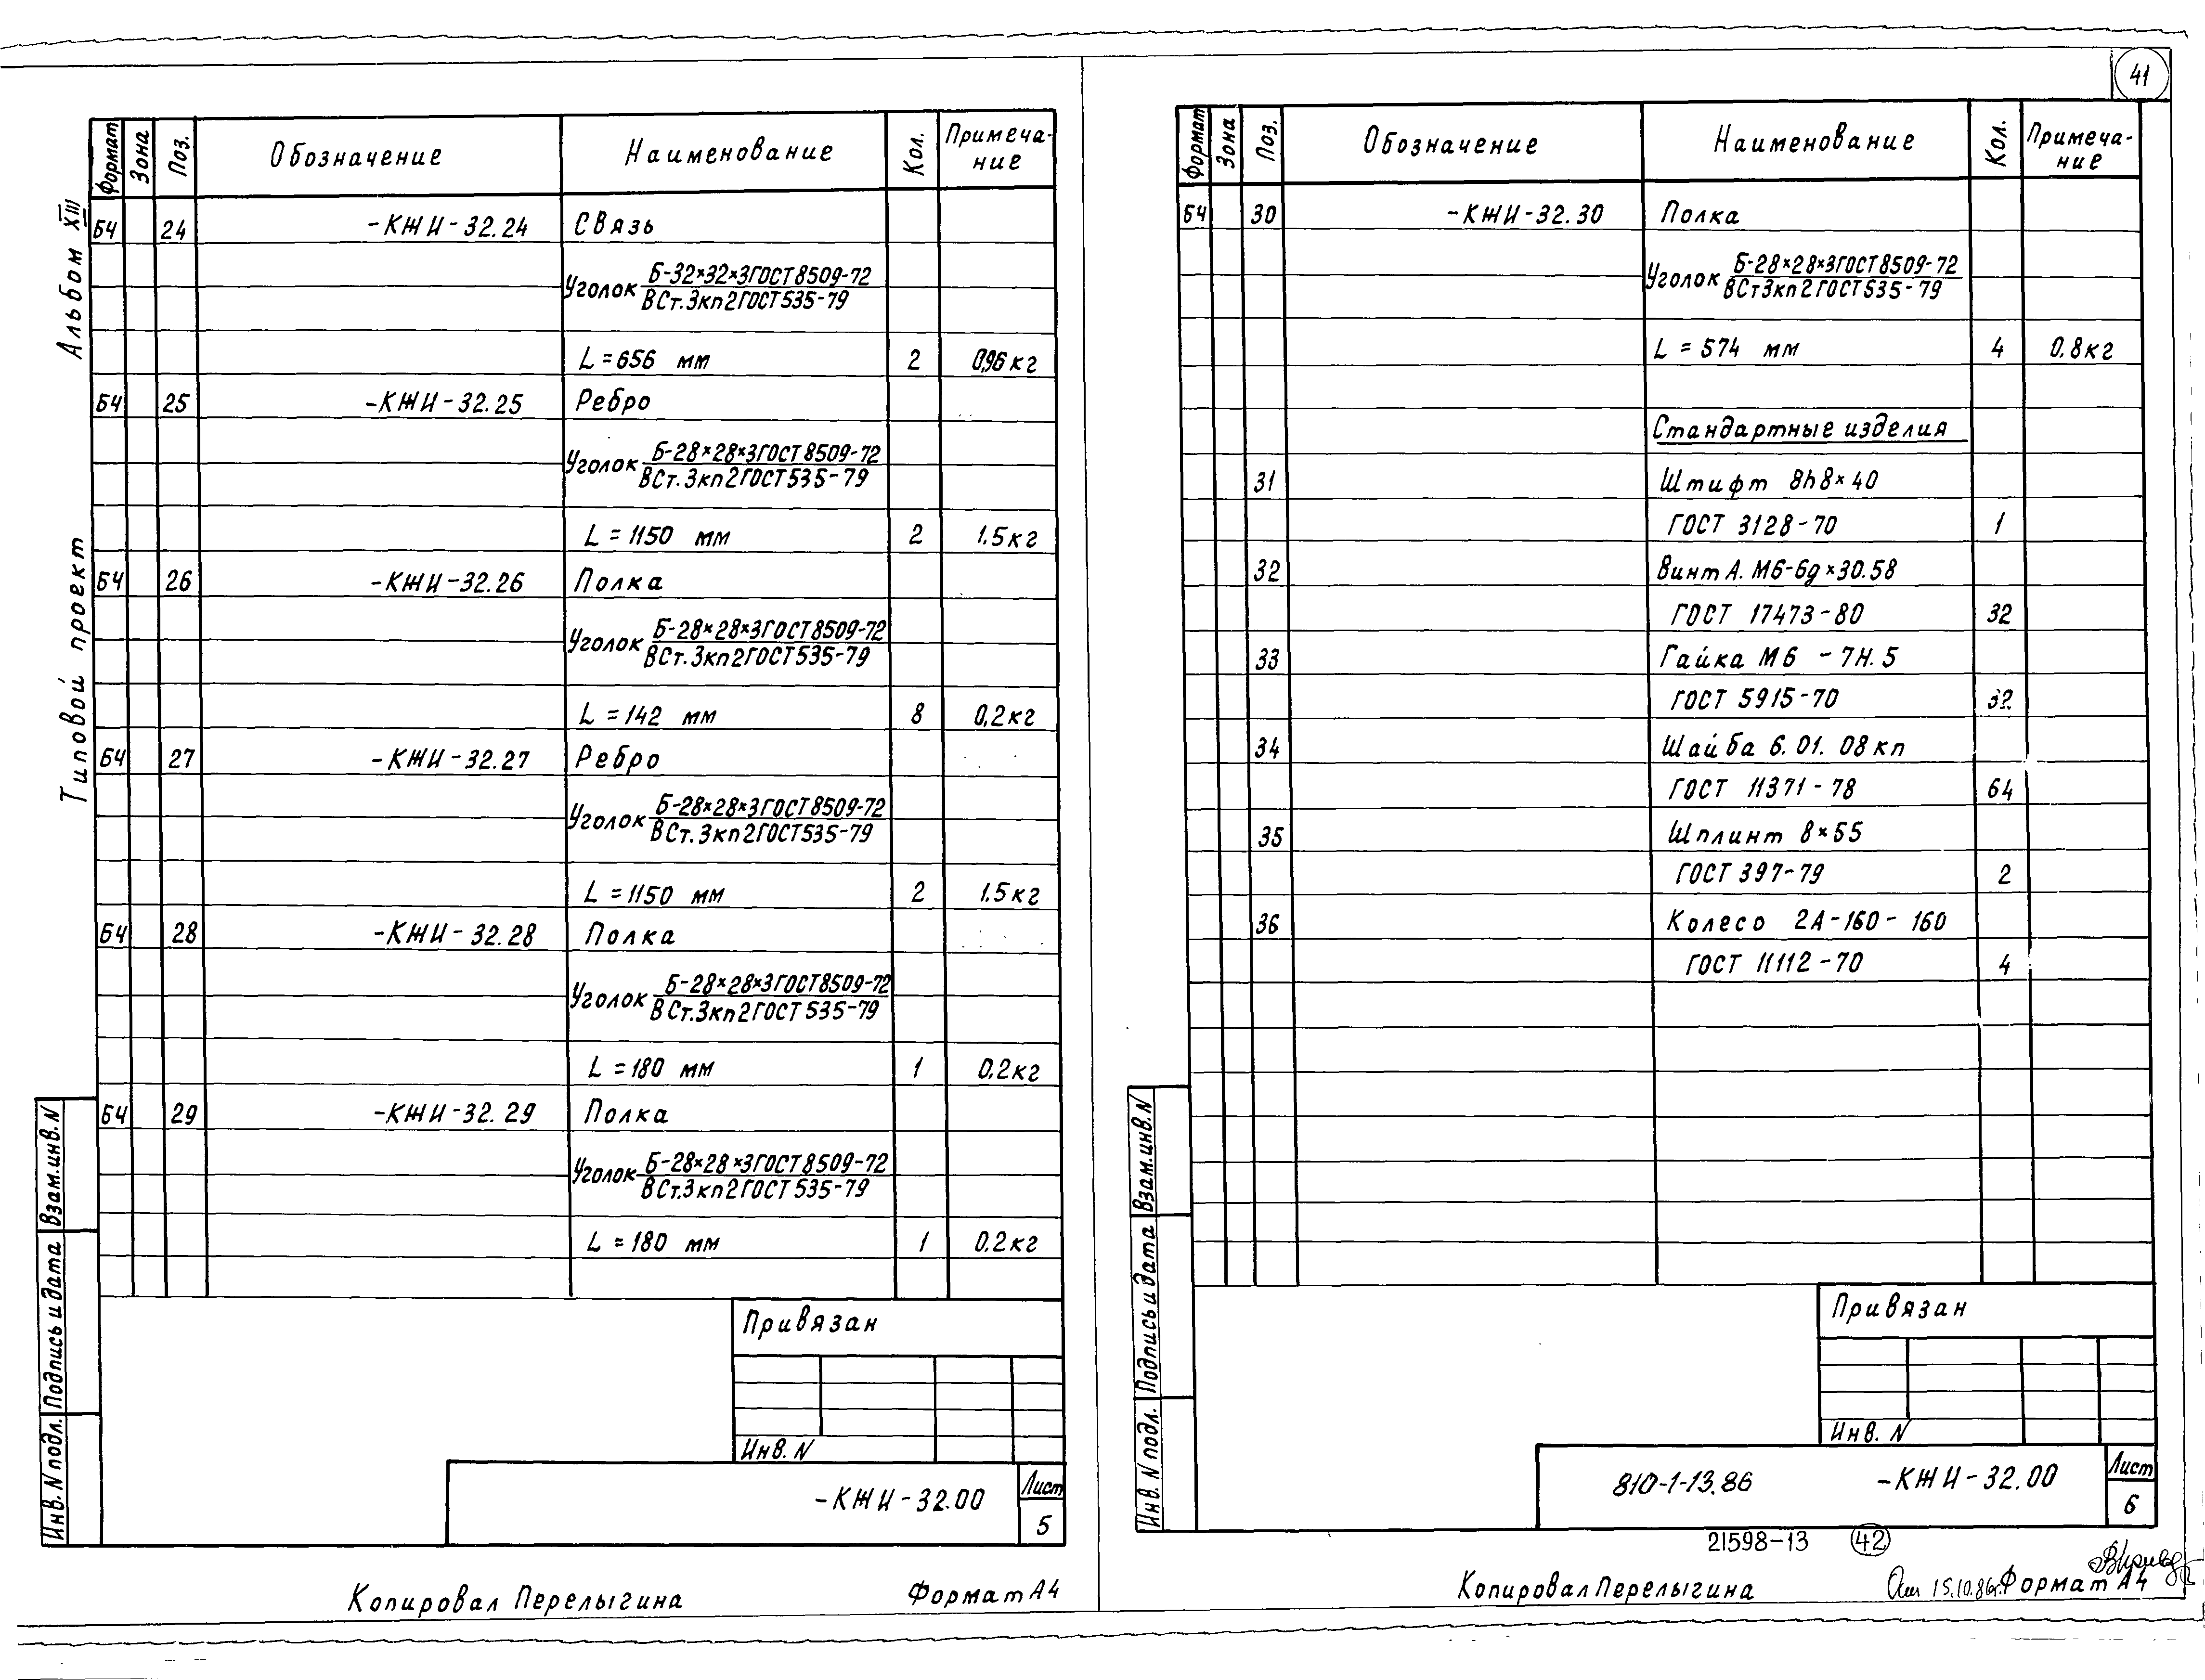 41
Альбом XIII
Типовой проект
Формат Зона Поз. Обозначение Наименование Кол. Примеча-
ние
БЧ 24 -КЖИ-32.24 Связь
Уголок Б-32×32×3 ГОСТ 8509-72
ВСт.3кп2 ГОСТ 535-79
L = 656 мм 2 0,96 кг
БЧ 25 -КЖИ-32.25 Ребро
Уголок Б-28×28×3 ГОСТ 8509-72
ВСт.3кп2 ГОСТ 535-79
L = 1150 мм 2 1.5 кг
БЧ 26 -КЖИ-32.26 Полка
Уголок Б-28×28×3 ГОСТ 8509-72
ВСт.3кп2 ГОСТ 535-79
L = 142 мм 8 0,2 кг
БЧ 27 -КЖИ-32.27 Ребро
Уголок Б-28×28×3 ГОСТ 8509-72
ВСт.3кп2 ГОСТ 535-79
L = 1150 мм 2 1.5 кг
БЧ 28 -КЖИ-32.28 Полка
Уголок Б-28×28×3 ГОСТ 8509-72
ВСт.3кп2 ГОСТ 535-79
L = 180 мм 1 0,2 кг
БЧ 29 -КЖИ-32.29 Полка
Уголок Б-28×28×3 ГОСТ 8509-72
ВСт.3кп2 ГОСТ 535-79
L = 180 мм 1 0.2 кг
Взам.инв.N
Подпись и дата
Инв. N подл.
Привязан
Инв. N
-КЖИ-32.00
Лист
5
Копировал Перелыгина Формат А4
Формат Зона Поз. Обозначение Наименование Кол. Примеча-
ние
БЧ 30 -КЖИ-32.30 Полка
Уголок Б-28×28×3 ГОСТ 8509-72
ВСт3кп2 ГОСТ 535-79
L = 574 мм 4 0.8 кг
Стандартные изделия
31 Штифт 8h8×40
ГОСТ 3128-70 1
32 Винт А.М6-6g×30.58
ГОСТ 17473-80 32
33 Гайка М6 - 7Н.5
ГОСТ 5915-70 32
34 Шайба 6.01.08кп
ГОСТ 11371-78 64
35 Шплинт 8×55
ГОСТ 397-79 2
36 Колесо 2А-160-160
ГОСТ 11112-70 4
Взам.инв.N
Подпись и дата
Инв. N подл.
Привязан
Инв. N
810-1-13.86 -КЖИ-32.00
Лист
6
21598-13 42
Копировал Перелыгина 15.10.86г. Формат А4